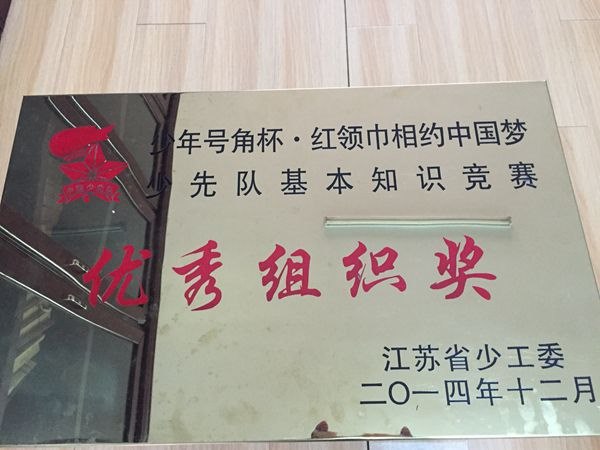 少年号角杯·红领巾相约中国梦
少先队基本知识竞赛
优秀组织奖
江苏省少工委
二〇一四年十二月